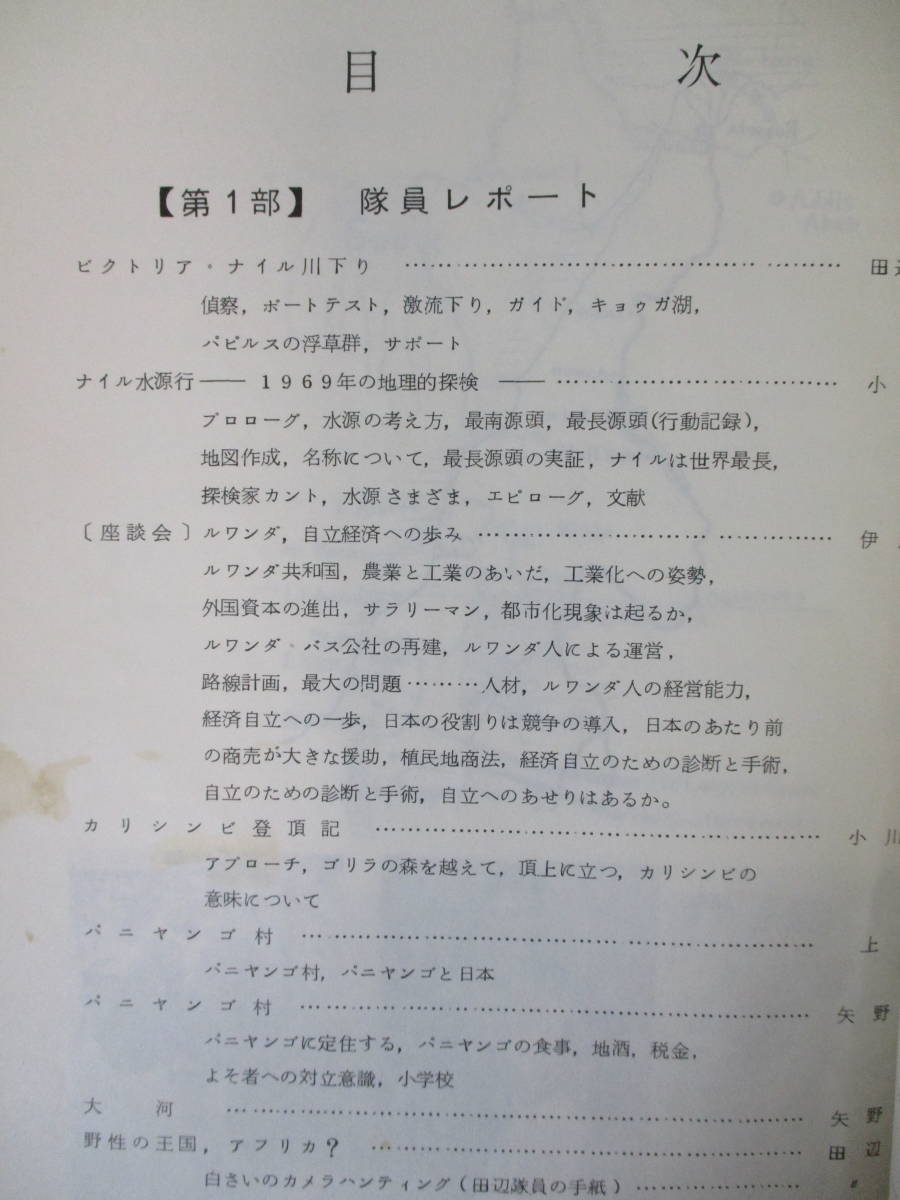 目 次
【第1部】 隊員レポート
ビクトリア・ナイル川下り ……………………………………………… 田
偵察，ボートテスト，激流下り，ガイド，キョゥガ湖，
パピルスの浮草群，サポート
ナイル水源行―― 1969年の地理的探検 ――………………………… 小
プロローグ，水源の考え方，最南源頭，最長源頭(行動記録)，
地図作成，名称について，最長源頭の実証，ナイルは世界最長，
探検家カント，水源さまざま，エピローグ，文献
〔座談会〕ルワンダ，自立経済への歩み ………………………………… 伊
ルワンダ共和国，農業と工業のあいだ，工業化への姿勢，
外国資本の進出，サラリーマン，都市化現象は起るか，
ルワンダ・バス公社の再建，ルワンダ人による運営，
路線計画，最大の問題………人材，ルワンダ人の経営能力，
経済自立への一歩，日本の役割りは競争の導入，日本のあたり前
の商売が大きな援助，植民地商法，経済自立のための診断と手術，
自立のための診断と手術，自立へのあせりはあるか。
カリシンビ登頂記 ………………………………………… 小川
アプローチ，ゴリラの森を越えて，頂上に立つ，カリシンビの
意味について
バニヤンゴ村 ……………………………………………… 上
バニヤンゴ村，バニヤンゴと日本
バニヤンゴ村 ……………………………………………… 矢野
バニヤンゴに定住する，バニヤンゴの食事，地酒，税金，
よそ者への対立意識，小学校
大 河 ……………………………………………………… 矢野
野性の王国，アフリカ？ ………………………………… 田辺
白さいのカメラハンティング(田辺隊員の手紙)……………… 〃